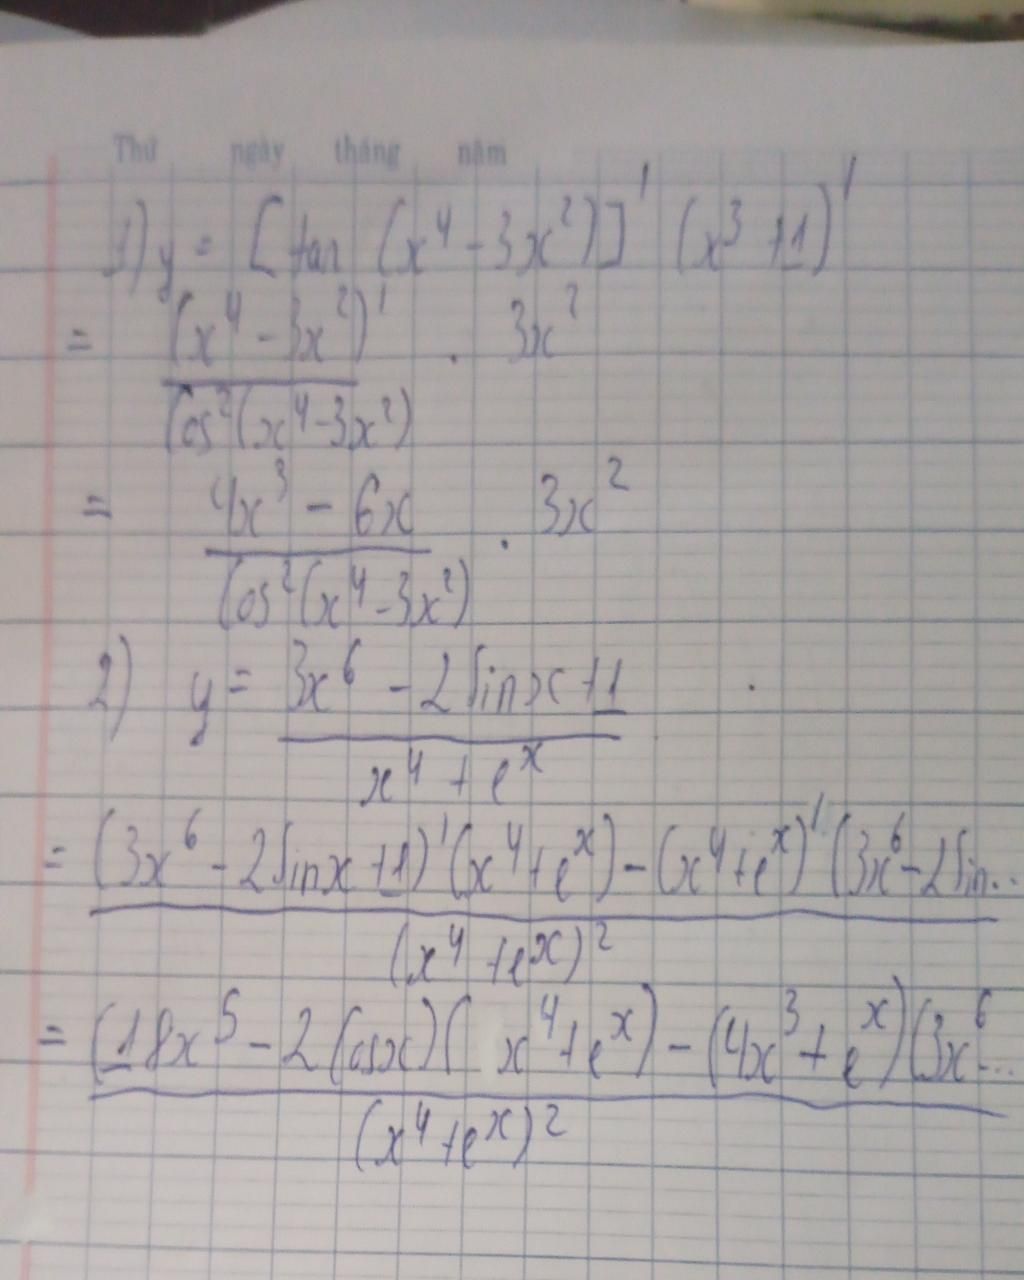 Thứ ngày tháng năm
1) y = [tan (x⁴ - 3x²)]' (x³ + 1)'
= (x⁴ - 3x²)' / cos²(x⁴ - 3x²) . 3x²
= 4x³ - 6x / cos²(x⁴ - 3x²) . 3x²
2) y = 3x⁶ - 2sinx + 1 / x⁴ + eˣ
= (3x⁶ - 2sinx + 1)'(x⁴ + eˣ) - (x⁴ + eˣ)'(3x⁶ - 2sin... / (x⁴ + eˣ)²
= (18x⁵ - 2cosx)(x⁴ + eˣ) - (4x³ + eˣ)(3x⁶ - ... / (x⁴ + eˣ)²